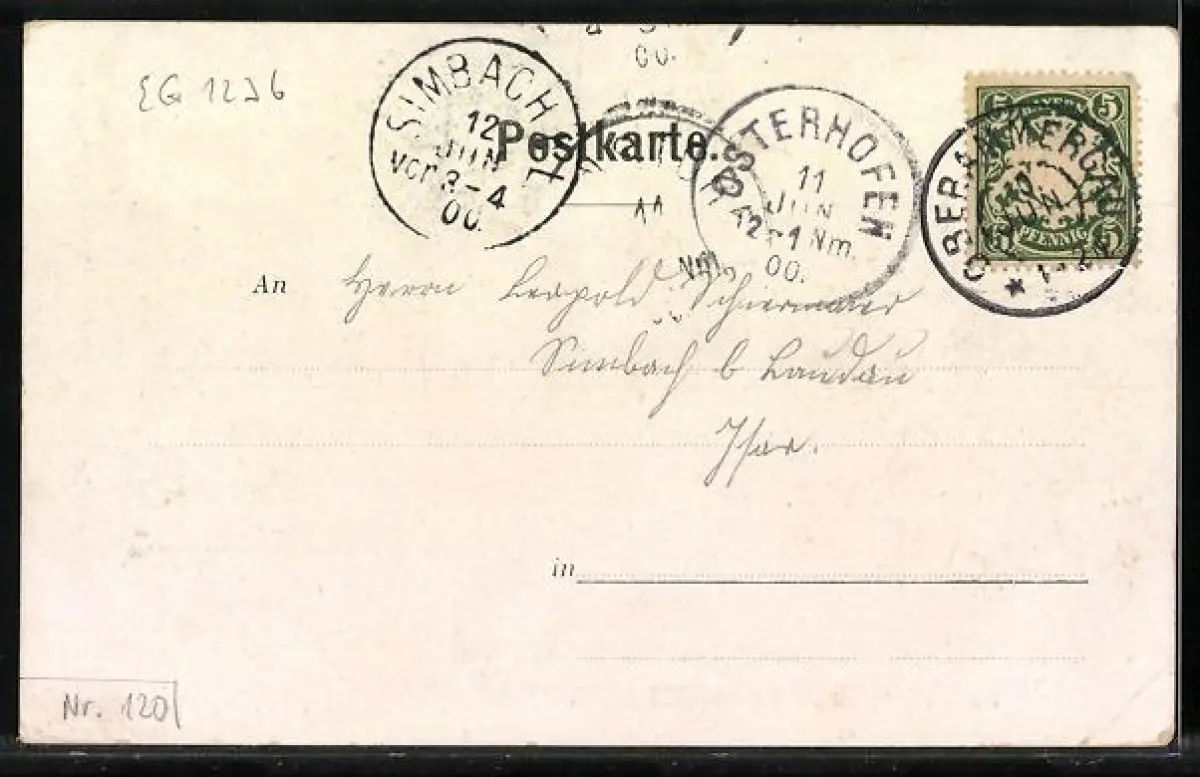 EG 1236
SIMBACH
12
JUN
Vor 3-4
00.
00.
Postkarte.
11
OSTERHOFEN
11
JUN
12-1 Nm.
00.
Nm.
OBERAMMERGAU
JUN
1-2
5 5
PFENNIG
5 5
An Herrn Leopold Schiermaier
Simbach b Landau
Isar.
in
Nr. 120